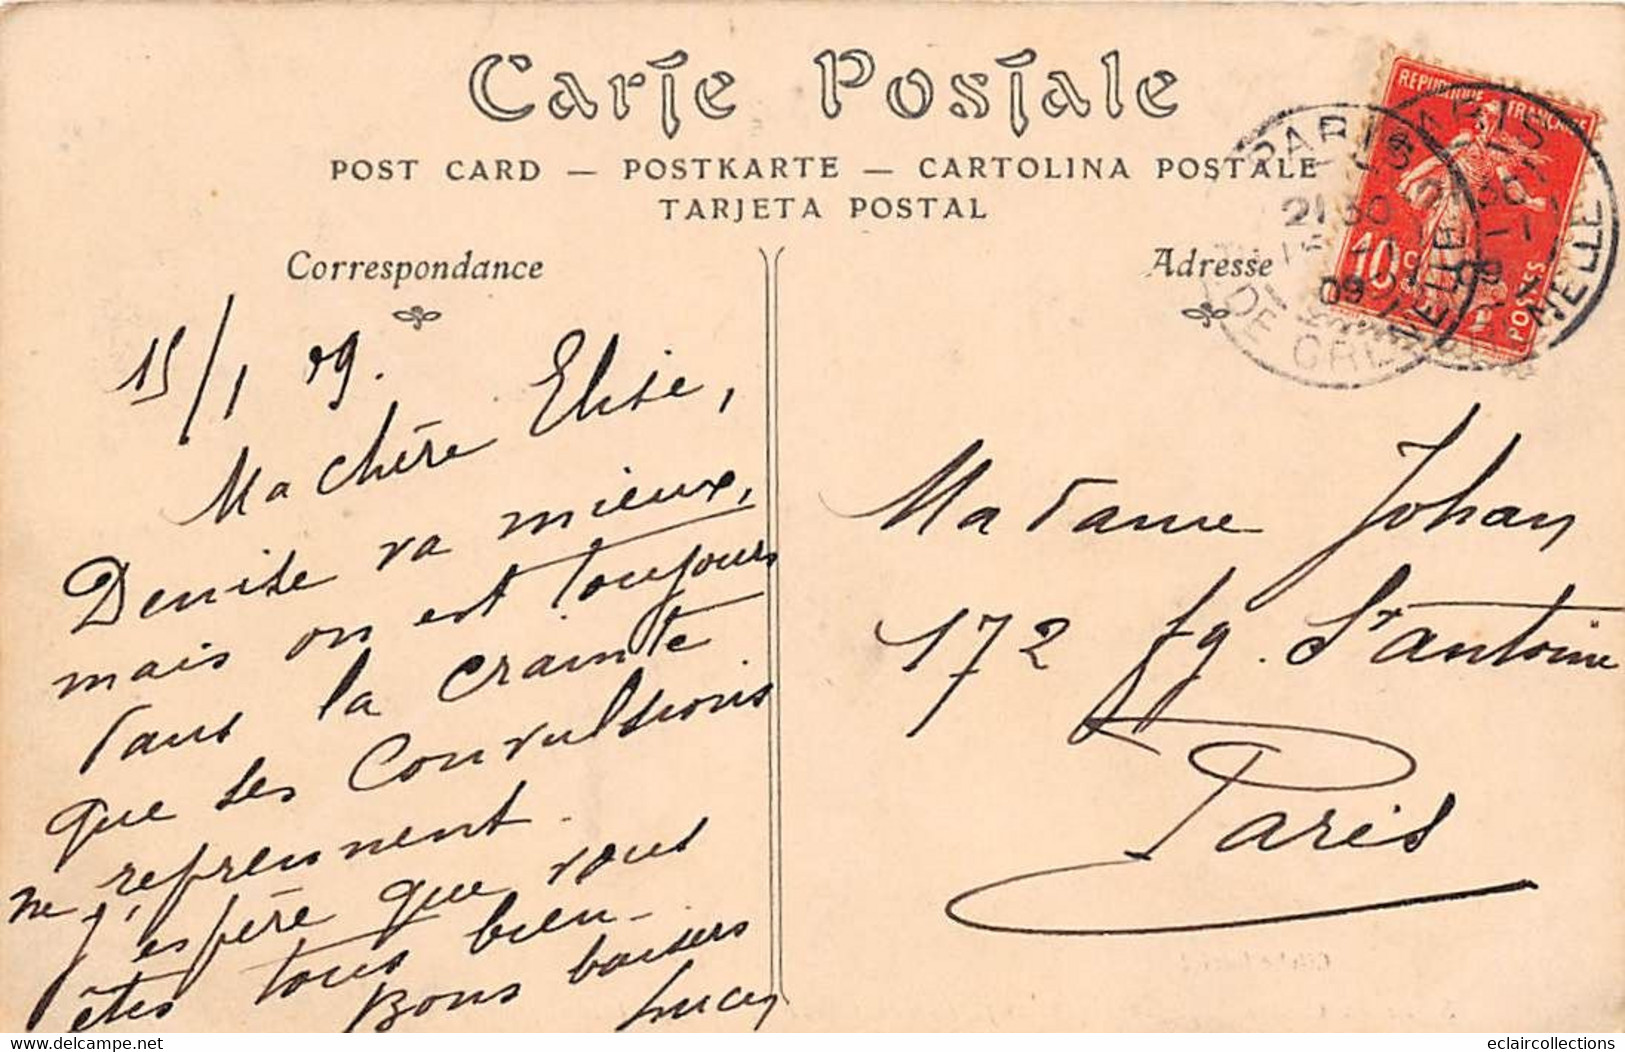 Carte Postale
POST CARD — POSTKARTE — CARTOLINA POSTALE
TARJETA POSTAL
Correspondance
15/1 09.
Ma chère Elise,
Denise va mieux,
mais on est toujours
dans la crainte
que ses convulsions
ne reprennent.
j'espère que vous
êtes tous bien.
Bons baisers
Lucy
Adresse
REPUBLIQUE FRANÇAISE
10 c
POSTES
PARIS
21 30
15
09
DE GRENELLE
PARIS
Madame Johan
172 fg. St antoine
Paris
eclaircollections